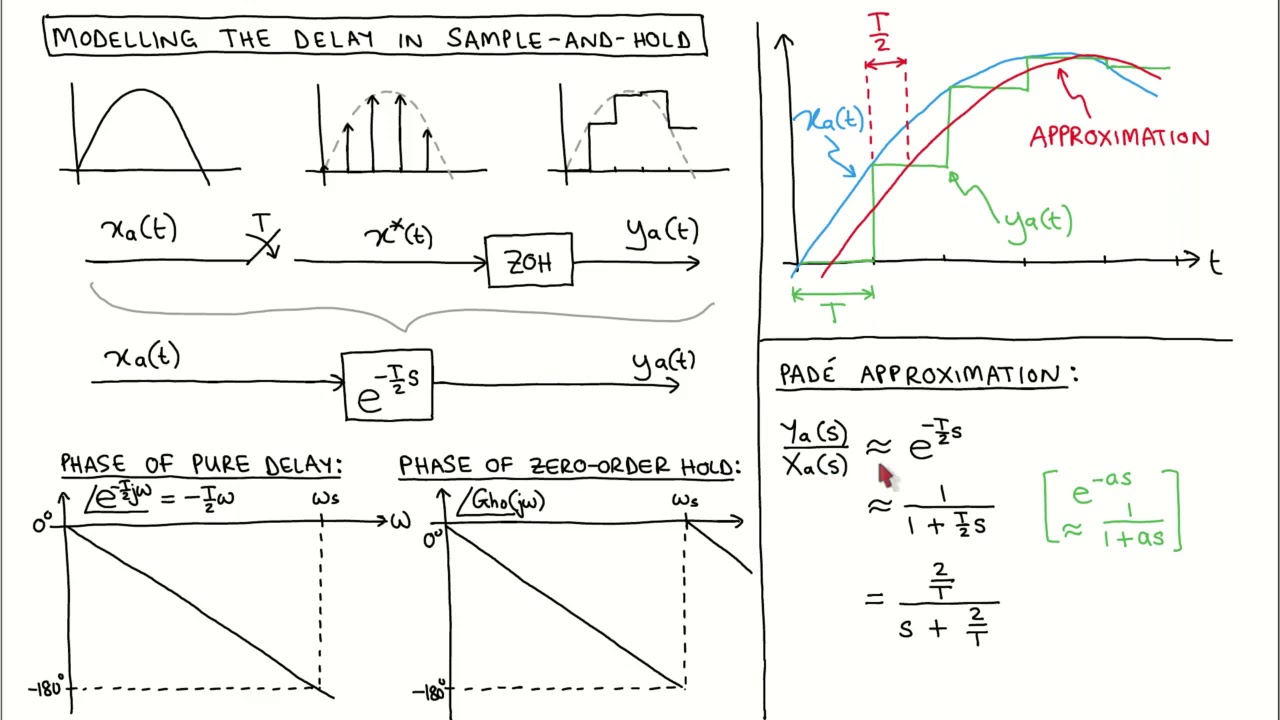 MODELLING THE DELAY IN SAMPLE-AND-HOLD
xa(t)
T
x*(t)
ZOH
ya(t)
xa(t)
e^(-T/2 s)
ya(t)
PHASE OF PURE DELAY:
∠e^(-T/2 jω) = -T/2 ω
ωs
0°
ω
-180°
PHASE OF ZERO-ORDER HOLD:
∠Gho(jω)
ωs
0°
-180°
T/2
xa(t)
APPROXIMATION
ya(t)
t
T
PADÉ APPROXIMATION:
Ya(s)/Xa(s) ≈ e^(-T/2 s)
≈ 1/(1 + T/2 s)
[e^(-as)
≈ 1/(1+as)]
= (2/T)/(s + 2/T)